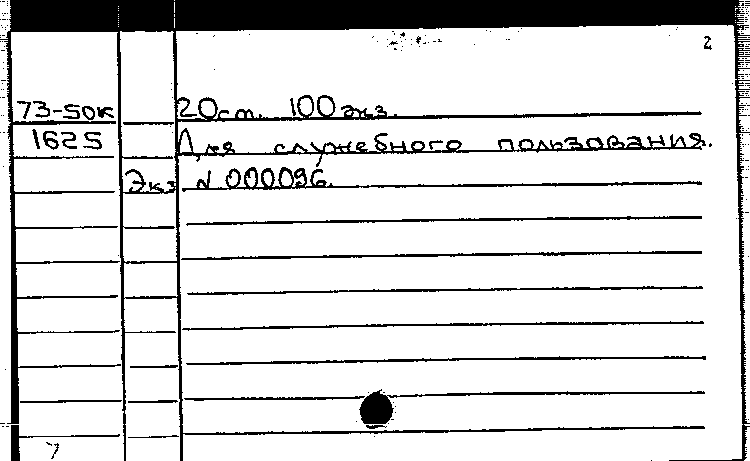 2
73-50К 20см. 100 экз.
1625 Для служебного пользования.
Экз N 000096.
7